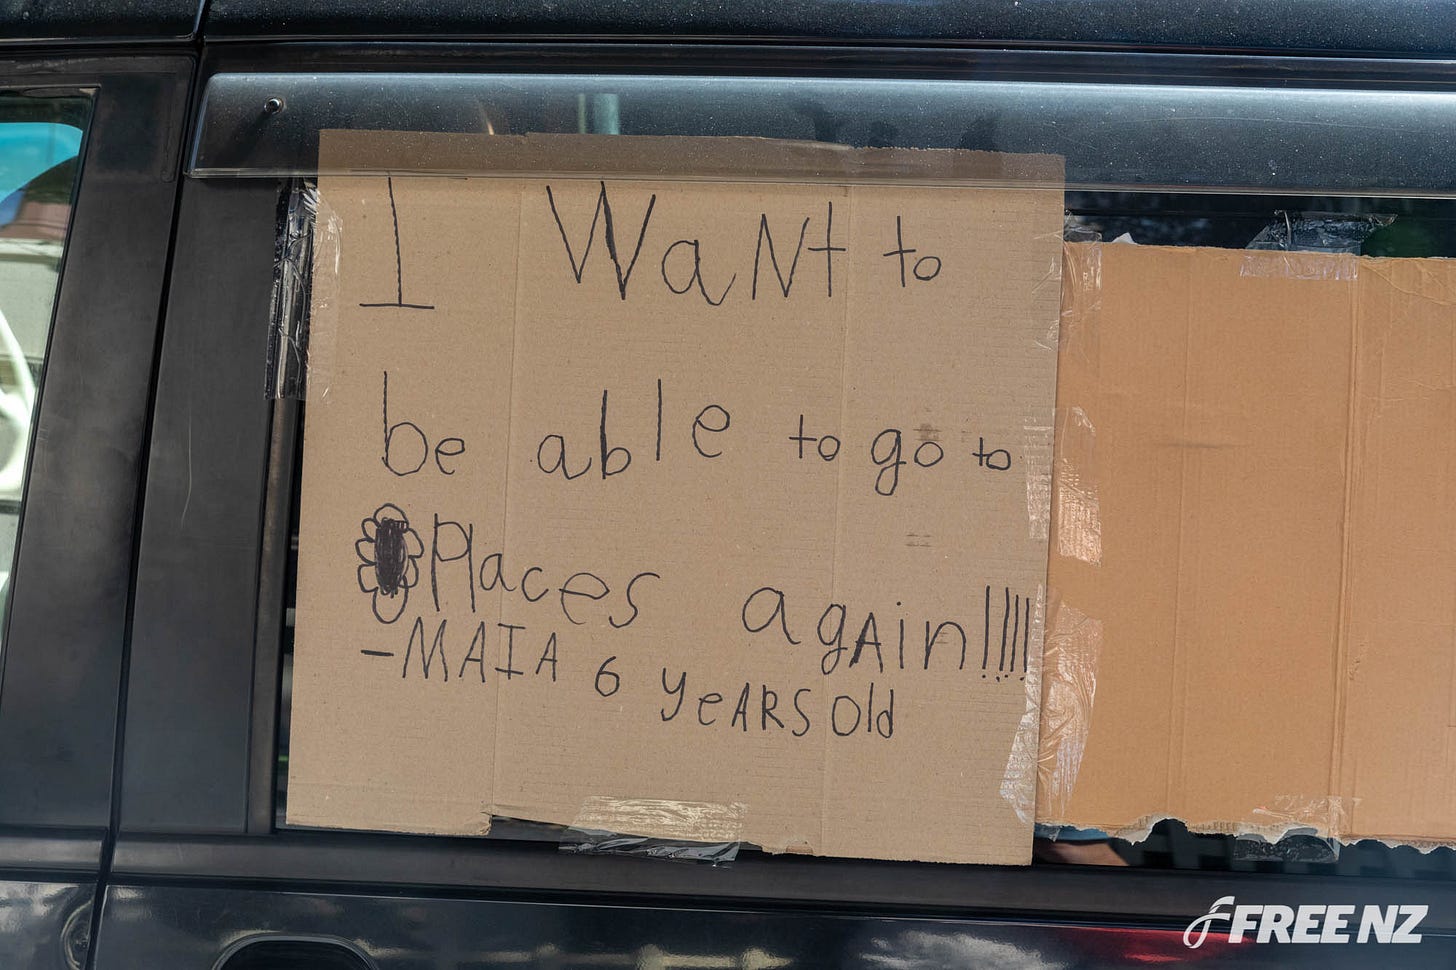 I WaNt to
be able to go to
Places again!!!!
-MAIA 6 yeARS old
FREE NZ